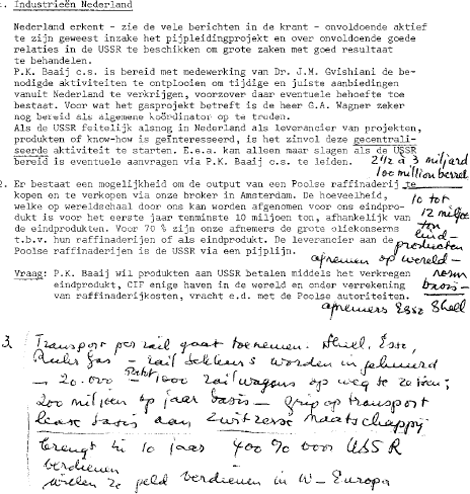 1. Industrieën Nederland
Nederland erkent - zie de vele berichten in de krant - onvoldoende aktief
te zijn geweest inzake het pijpleidingprojekt en over onvoldoende goede
relaties in de USSR te beschikken om grote zaken met goed resultaat
te behandelen.
P.K. Baaij c.s. is bereid met medewerking van Dr. J.M. Gvishiani de be-
nodigde aktiviteiten te ontplooien om tijdige en juiste aanbiedingen
vanuit Nederland te verkrijgen, voorzover daar eventuele behoefte toe
bestaat. Voor wat het gasprojekt betreft is de heer G.A. Wagner zeker
nog bereid als algemene koördinator op te treden.
Als de USSR feitelijk alsnog in Nederland als leverancier van projekten,
produkten of know-how is geïnteresseerd, is het zinvol deze gecentrali-
seerde aktiviteit te starten. E.e.a. kan alleen maar slagen als de USSR
bereid is eventuele aanvragen via P.K. Baaij c.s. te leiden.
2 1/2 à 3 miljard
100 million barrel
2. Er bestaat een mogelijkheid om de output van een Poolse raffinaderij te
kopen en te verkopen via onze broker in Amsterdam. De hoeveelheid,
welke op wereldschaal door ons kan worden afgenomen voor ons eindpro-
dukt is voor het eerste jaar tenminste 10 miljoen ton, afhankelijk van
de eindprodukten. Voor 70 % zijn onze afnemers de grote oliekonserns
t.b.v. hun raffinaderijen of als eindprodukt. De leverancier aan de
Poolse raffinaderijen is de USSR via een pijplijn.
10 tot
12 miljoen
ton
eind-
producten
afnemen op wereld-
norm
basis-
afnemers Esso Shell
Vraag: P.K. Baaij wil produkten aan USSR betalen middels het verkregen
eindprodukt, CIF enige haven in de wereld en onder verrekening
van raffinaderijkosten, vracht e.d. met de Poolse autoriteiten.
3. Transport per rail gaat toenemen. Shell, Esso,
Ruhr Gas - rail worden in gehuurd
- 20.000 1000 railwagons op weg te zetten;
200 miljoen op jaar basis - grip op transport
lease basis aan Zwitserse maatschappij
brengt in 10 jaar 400 % voor USSR
verdienen
willen ze geld verdienen in W-Europa